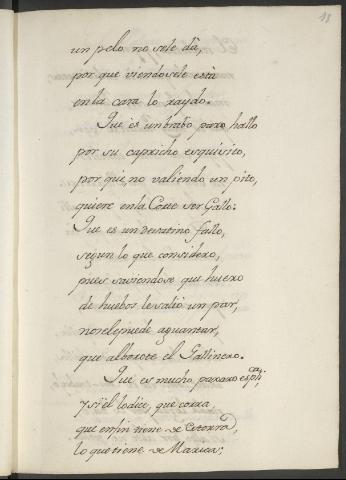 13
un pelo no se le dà,
por que viendosele està
en la cara lo raydo.
Que es un brabo paxo hallo
por su capricho esquisito,
por que, no valiendo un pito,
quiere en la Corte ser Gallo.
Que es un desatino fallo,
segun lo que considero,
pues saviendose que huero
de huebos le salio un par,
no se le puede aguantar,
que alborote el Gallinero.
Que es mucho paxaro espli
y si èl lo dice, que corra,
que en fin tiene de Cotorra,
lo que tiene de Marica;